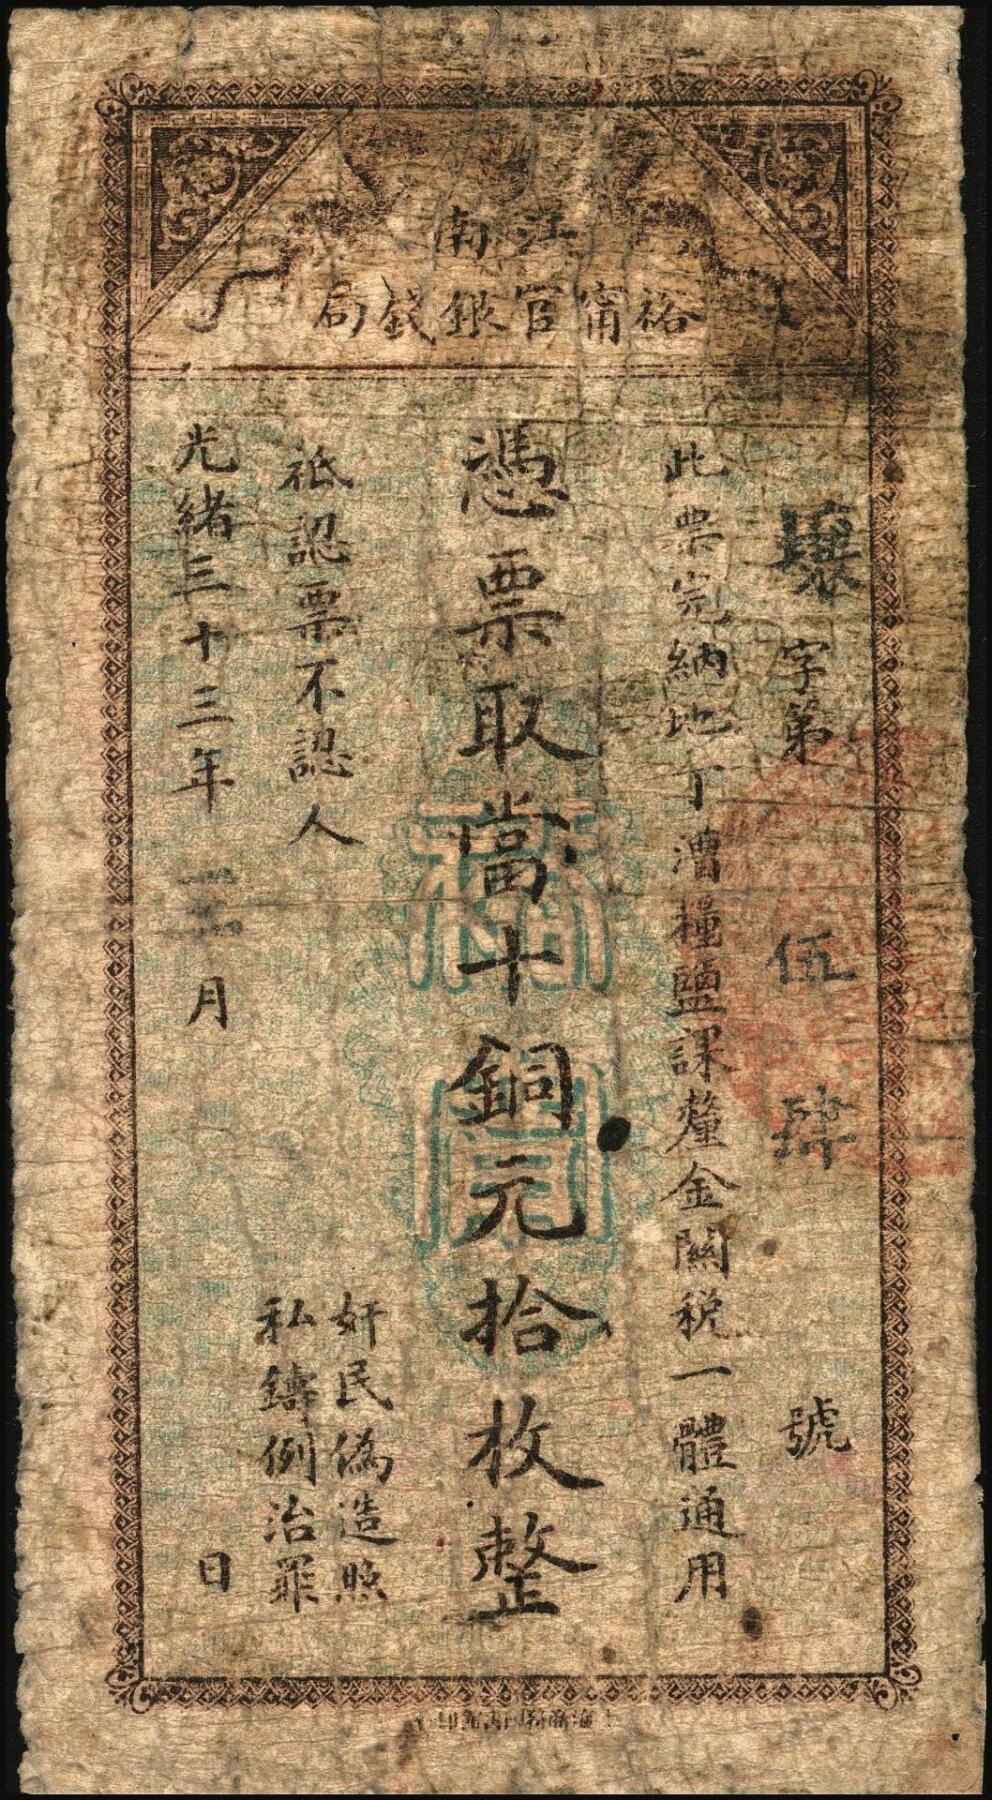 江南
裕甯官銀錢局
字第伍肆號
此票完納地丁漕糧鹽課釐金關稅一體通用
憑票取當十銅元拾枚整
裕甯
祗認票不認人
奸民偽造照
私鑄例治罪
光緒三十三年 月 日